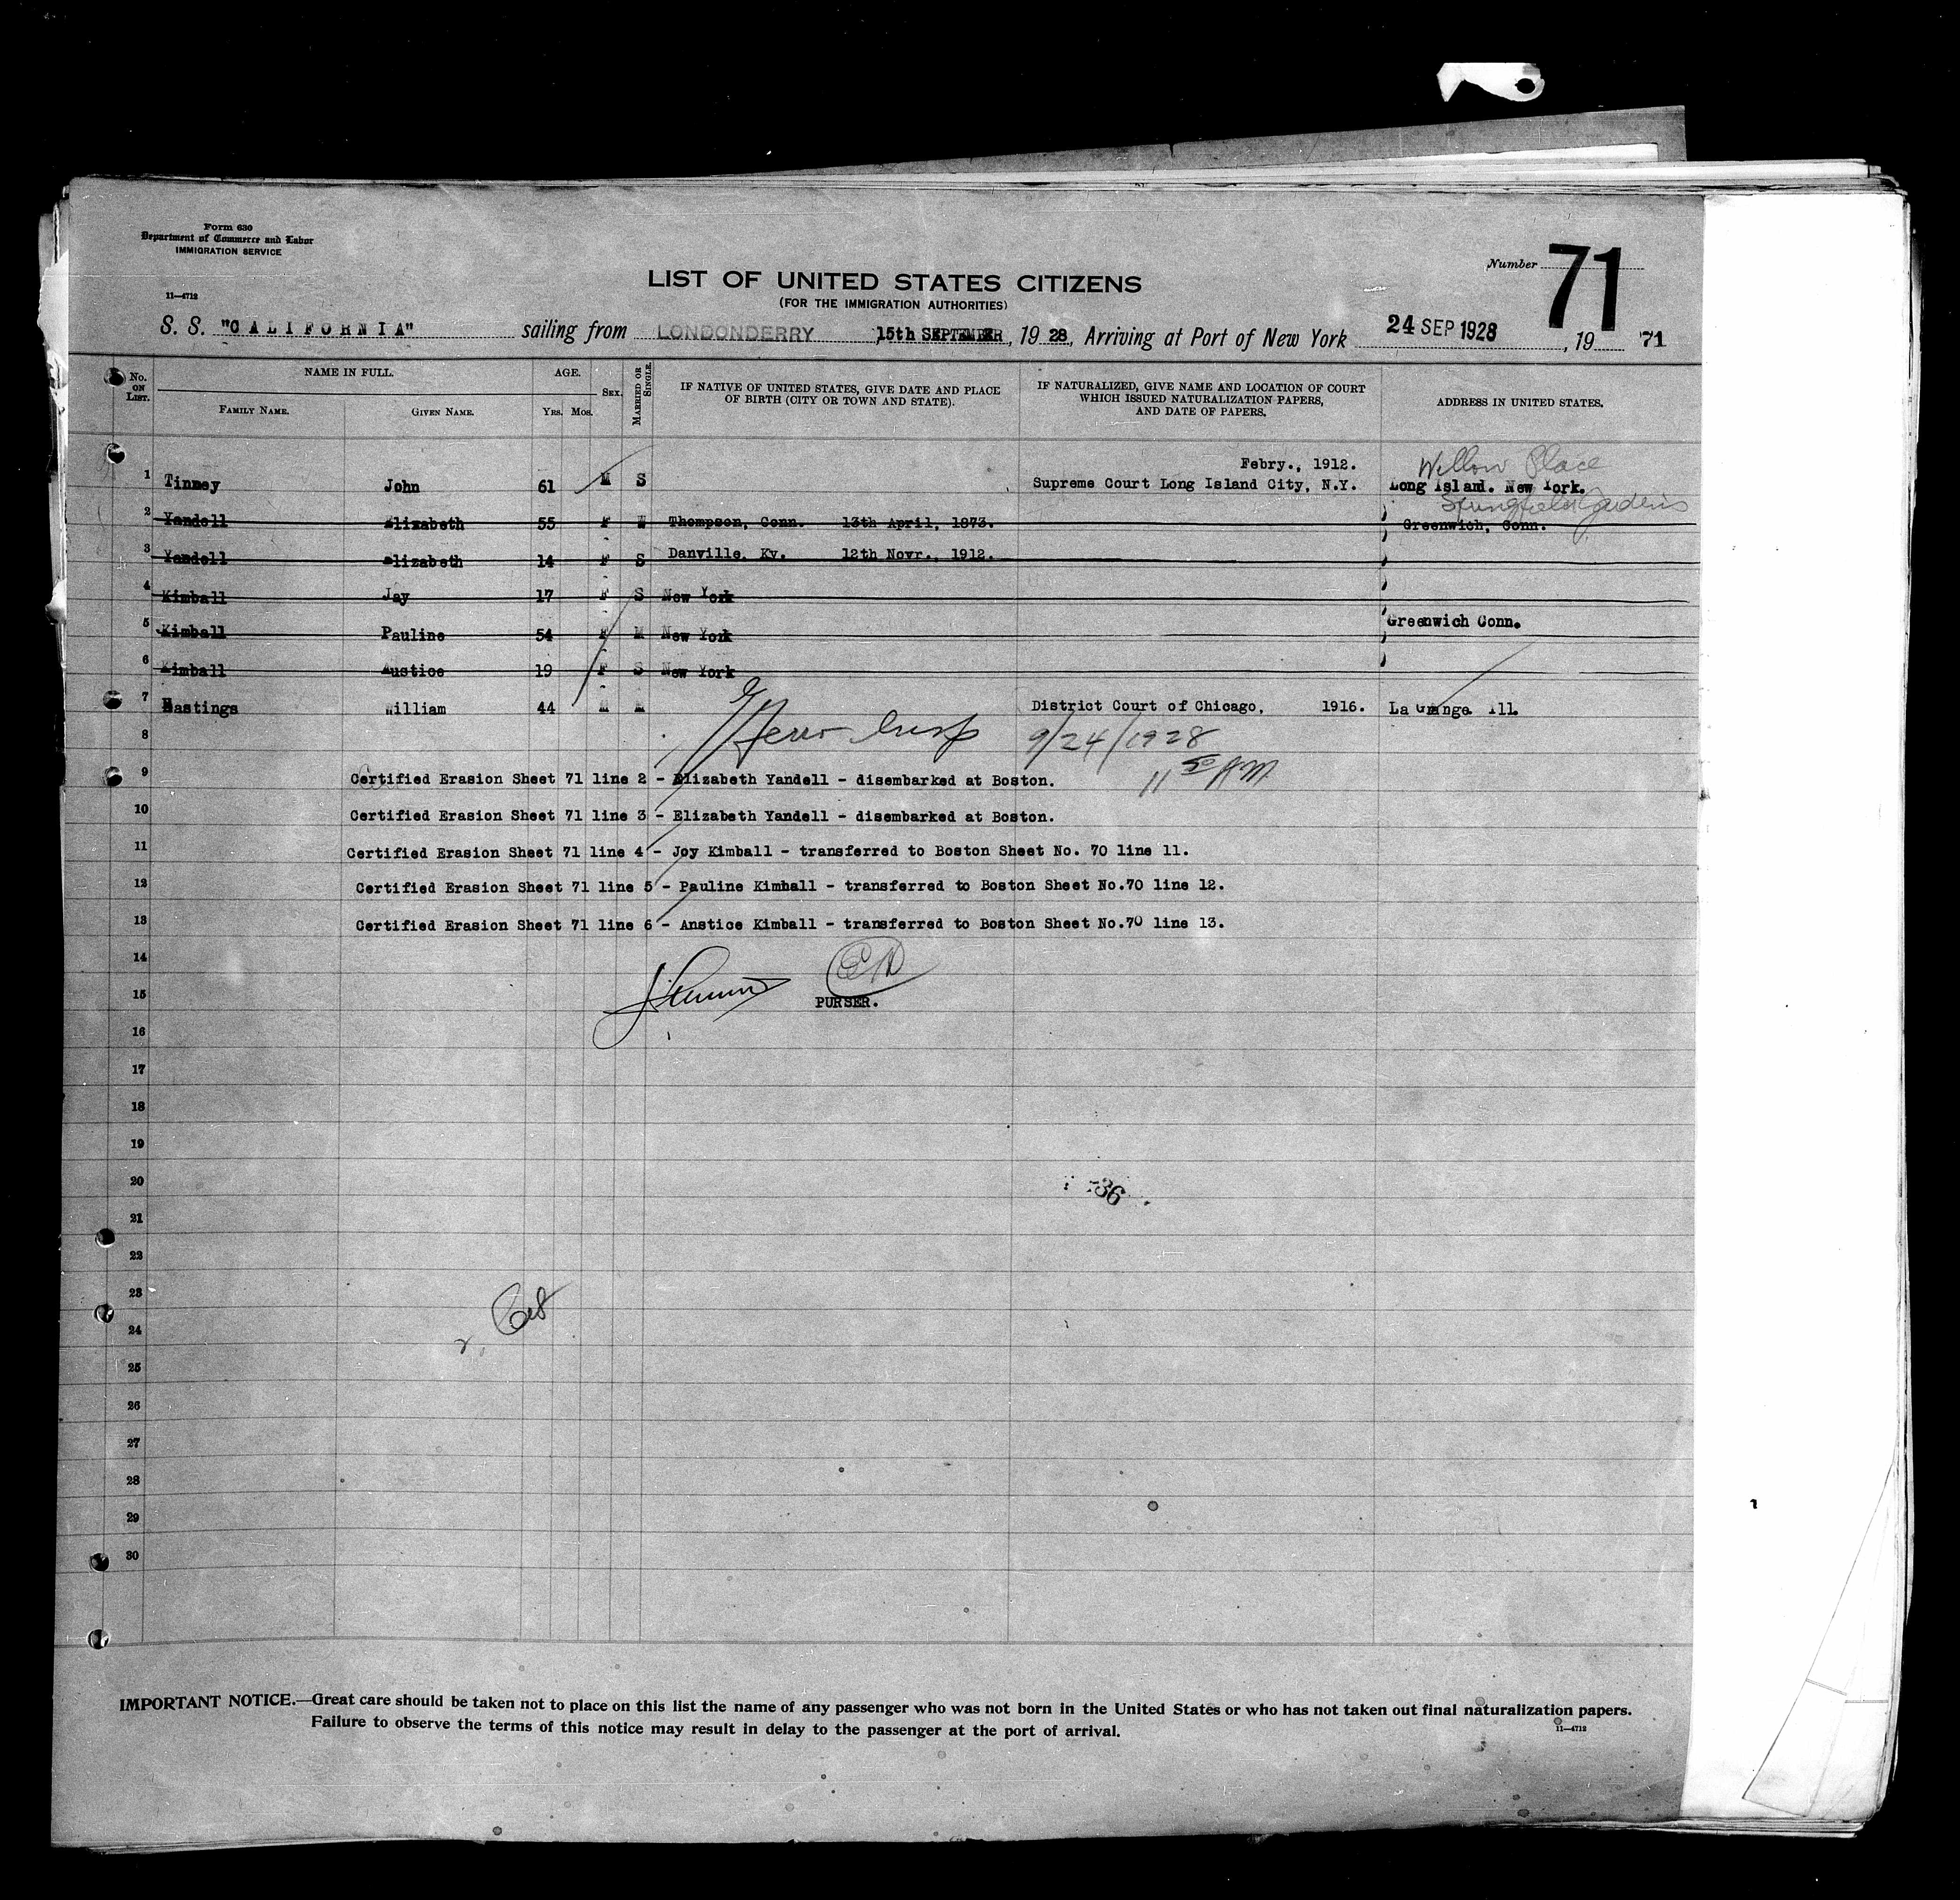 Form 630
Department of Commerce and Labor
IMMIGRATION SERVICE
11—4712
Number 71
LIST OF UNITED STATES CITIZENS
(FOR THE IMMIGRATION AUTHORITIES)
S. S. "CALIFORNIA" sailing from LONDONDERRY 15th SEPTEMBER, 19 28, Arriving at Port of New York 24 SEP 1928, 19 71
No. ON LIST. NAME IN FULL. FAMILY NAME. GIVEN NAME. AGE. YRS. MOS. SEX. MARRIED OR SINGLE. IF NATIVE OF UNITED STATES, GIVE DATE AND PLACE OF BIRTH (CITY OR TOWN AND STATE). IF NATURALIZED, GIVE NAME AND LOCATION OF COURT WHICH ISSUED NATURALIZATION PAPERS, AND DATE OF PAPERS. ADDRESS IN UNITED STATES.
Febry., 1912. Willow Place
1 Tinney John 61 M S Supreme Court Long Island City, N.Y. Long Island. New York.
Springfield Gardens
2 Yandell Elizabeth 55 F Thompson, Conn. 13th April, 1873. Greenwich, Conn.
3 Yandell Elizabeth 14 F S Danville, Ky. 12th Novr., 1912.
4 Kimball Jay 17 F S New York
5 Kimball Pauline 54 F M New York Greenwich Conn.
6 Kimball Austice 19 F S New York
7 Hastings William 44 M M District Court of Chicago, 1916. La Grange Ill.
8 9/24/1928
9 Certified Erasion Sheet 71 line 2 - Elizabeth Yandell - disembarked at Boston. 11 50 AM
10 Certified Erasion Sheet 71 line 3 - Elizabeth Yandell - disembarked at Boston.
11 Certified Erasion Sheet 71 line 4 - Joy Kimball - transferred to Boston Sheet No. 70 line 11.
12 Certified Erasion Sheet 71 line 5 - Pauline Kimball - transferred to Boston Sheet No.70 line 12.
13 Certified Erasion Sheet 71 line 6 - Anstice Kimball - transferred to Boston Sheet No.70 line 13.
14
15 PURSER.
16
17
18
19
20 36
21
22
23
24
25
26
27
28
29
30
IMPORTANT NOTICE.—Great care should be taken not to place on this list the name of any passenger who was not born in the United States or who has not taken out final naturalization papers.
Failure to observe the terms of this notice may result in delay to the passenger at the port of arrival.
11—4712